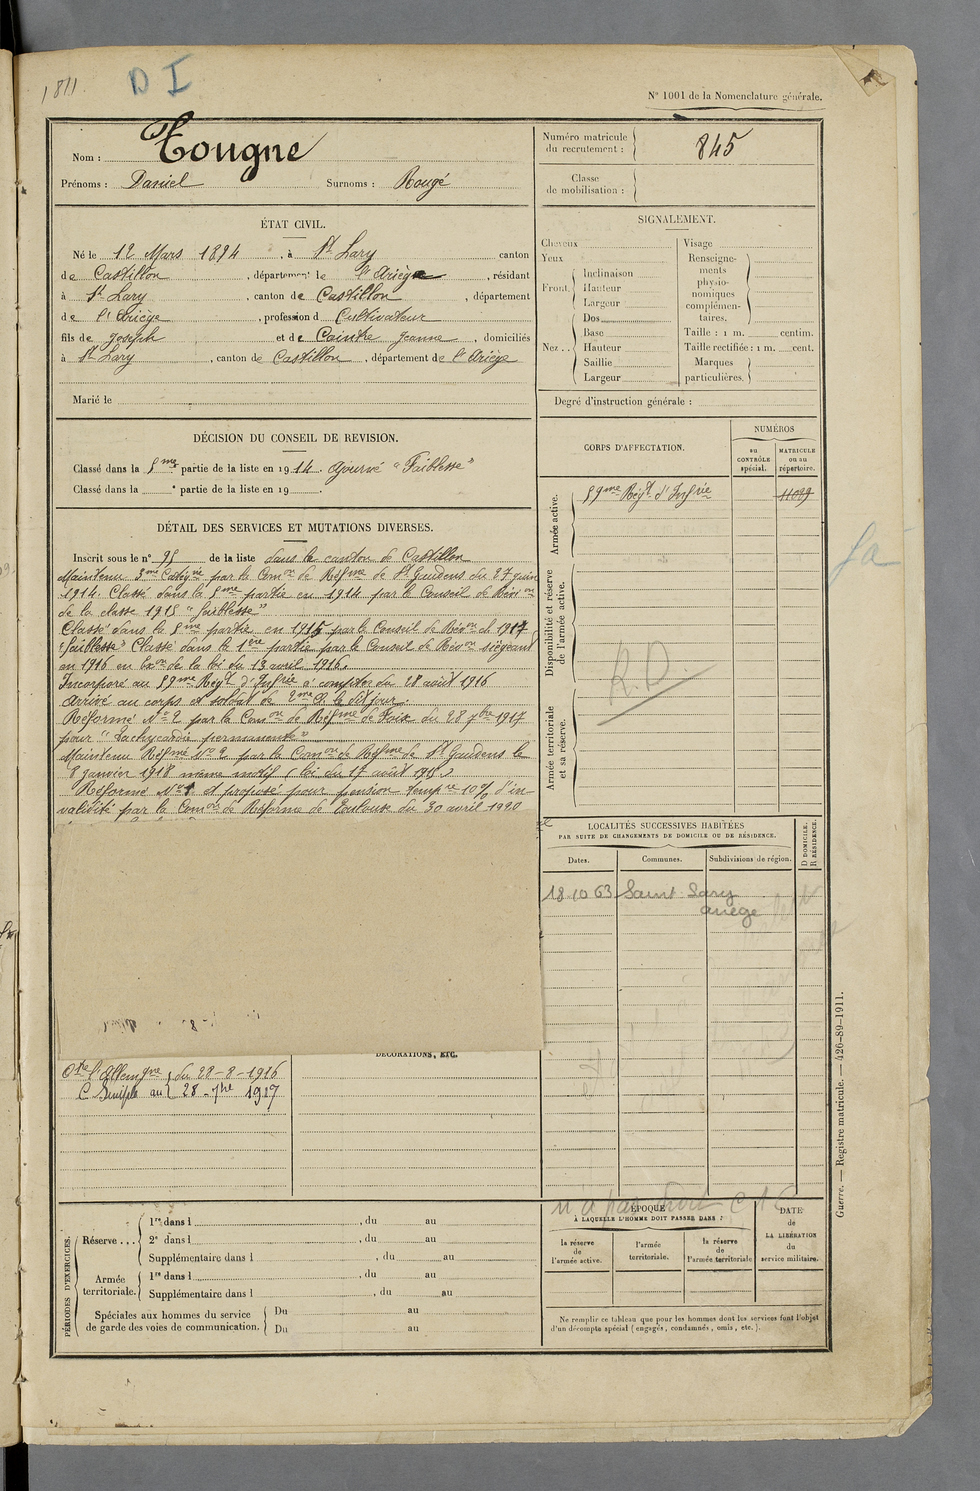 1811
D I
N° 1001 de la Nomenclature générale.
Nom : Tougne
Prénoms : Daniel Surnoms : Rougé
Numéro matricule du recrutement : 845
Classe de mobilisation :
ÉTAT CIVIL.
Né le 12 Mars 1894, à St Lary canton
de Castillon, département de l'Ariège, résidant
à St Lary, canton de Castillon, département
de l'Ariège, profession d Cultivateur
fils de Joseph et de Cointre Jeanne, domiciliés
à St Lary, canton de Castillon, département de l'Ariège
Marié le
SIGNALEMENT.
Cheveux
Yeux
Front.
Inclinaison
Hauteur
Largeur
Nez..
Dos
Base
Hauteur
Saillie
Largeur
Visage
Renseignements physionomiques complémentaires.
Taille : 1 m. centim.
Taille rectifiée : 1 m. cent.
Marques particulières.
Degré d'instruction générale :
DÉCISION DU CONSEIL DE REVISION.
Classé dans la 5me partie de la liste en 1914. ajourné "Faiblesse"
Classé dans la e partie de la liste en 19 .
DÉTAIL DES SERVICES ET MUTATIONS DIVERSES.
Inscrit sous le n° 95 de la liste dans le canton de Castillon
Maintenu 3me Catégie par la Comon de Réfme de St Gaudens du 27 juin
1914. Classé dans la 5me partie en 1914 par le Conseil de Révion
de la classe 1915 "faiblesse"
Classé dans la 5me partie en 1915 par le Conseil de Révon cl 1917
"faiblesse" Classé dans la 1ère partie par le Conseil de Révon siégeant
en 1916 en Exon de la loi du 13 avril 1916.
Incorporé au 59me Régt d'Infrie à compter du 28 août 1916
Arrivé au corps et soldat de 2me Cl. le dit jour.
Réformé N° 2 par la Comon de Réfme de Foix du 28 7bre 1917
pour "Tachycardie permanente"
Maintenu Réfmé N° 2 par la Comon de Réfme de St Gaudens le
8 janvier 1918 même motif (loi du 17 août 1915)
Réformé N° 1 et proposé pour pension tempre 10% d'in-
validité par la Comon de Réforme de Toulouse du 30 avril 1920
CORPS D'AFFECTATION.
NUMÉROS
au CONTRÔLE spécial.
MATRICULE ou au répertoire.
Armée active.
59me Régt d'Infrie 11099
Disponibilité et réserve de l'armée active.
R.D.
Armée territoriale et sa réserve.
LOCALITÉS SUCCESSIVES HABITÉES
PAR SUITE DE CHANGEMENTS DE DOMICILE OU DE RÉSIDENCE.
Dates. Communes. Subdivisions de région.
D DOMICILE. R RÉSIDENCE.
18.10 63 Saint Lary
ariège
DÉCORATIONS, ETC.
Ctre l'Allemgne du 28-8-1916
C Simple au 28-7bre 1917
PÉRIODES D'EXERCICES.
Réserve ...
1re dans l , du au
2e dans l , du au
Supplémentaire dans l , du au
Armée territoriale.
1re dans l , du au
Supplémentaire dans l , du au
Spéciales aux hommes du service de garde des voies de communication.
Du au
Du au
n'a pas droit C
ÉPOQUE
À LAQUELLE L'HOMME DOIT PASSER DANS :
la réserve de l'armée active.
l'armée territoriale.
la réserve de l'armée territoriale
DATE de LA LIBÉRATION du service militaire.
Ne remplir ce tableau que pour les hommes dont les services font l'objet
d'un décompte spécial (engagés, condamnés, omis, etc.).
Guerre. — Registre matricule. — 426-89-1911.